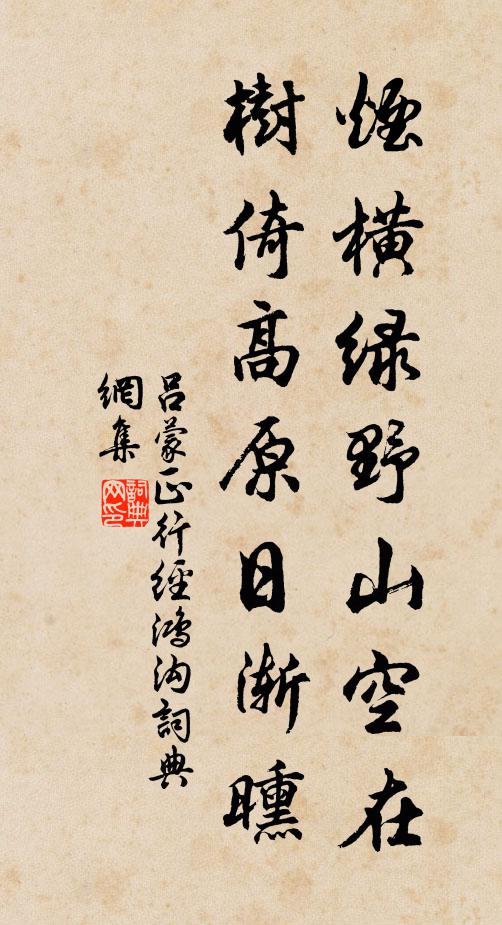 煙橫綠野山空在
樹倚高原日漸曛
呂蒙正行經鴻沟詞典
網集
詞典
网印